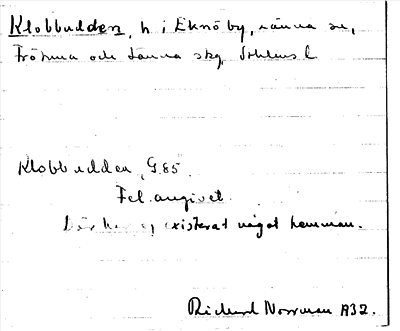 Klobbudden, h i Eknö by, Länna sn,
Frötuna och Länna skg, Sthlms l
Klobbudden, G.85
Fel angivet.
Där har ej existerat något hemman.
Richard Norrman 1932.